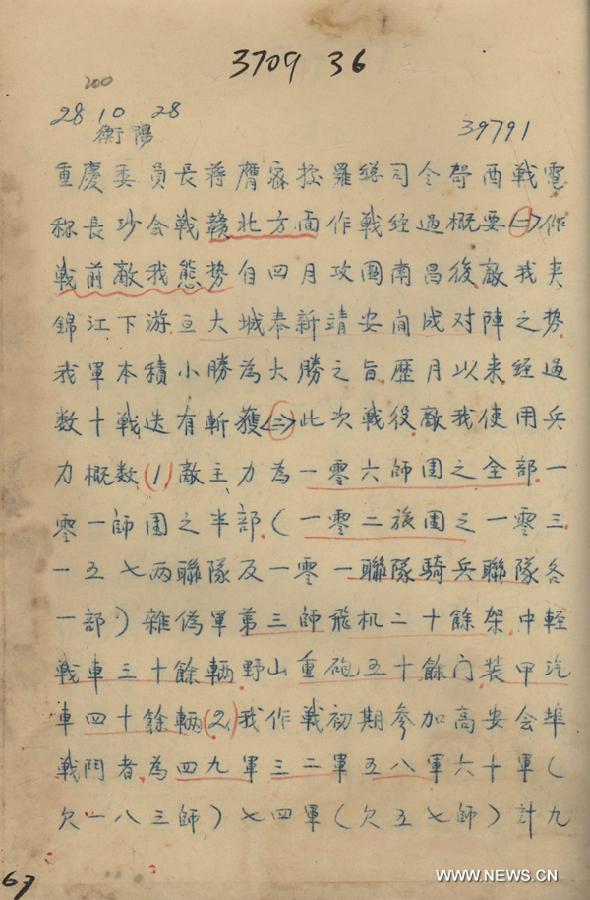 3709 36
200
28 10 28
衡陽
39791
重慶委員長蔣膺密據羅總司令卓酉戰電
称長沙会战贛北方面作战经过概要(一)作
战前敵我態势自四月攻圍南昌後敵我夹
錦江下游亘大城奉新靖安间成对陣之势
我軍本積小勝為大勝之旨歷月以来经过
数十战迭有斬獲(二)此次战役敵我使用兵
力概数(1)敵主力為一零六師团之全部一
零一師团之半部(一零二旅团之一零三
一五七两聯隊及一零一聯隊騎兵聯隊各
一部)雜偽軍第三師飛机二十餘架中輕
战車三十餘輛野山重砲五十餘门装甲汽
車四十餘輛(2)我作战初期参加高安会埠
战鬥者為四九軍三二軍五八軍六十軍(
欠一八三師)七四軍(欠五七師)計九
67
WWW.NEWS.CN